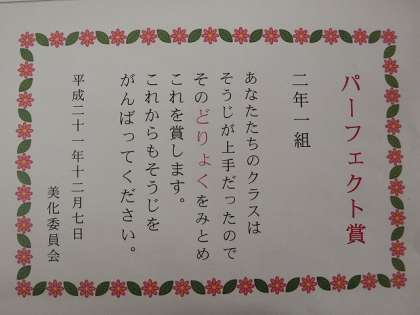 パーフェクト賞
二年一組
あなたたちのクラスは
そうじが上手だったので
そのどりょくをみとめ
これを賞します。
これからもそうじを
がんばってください。
平成二十一年十二月七日
美化委員会